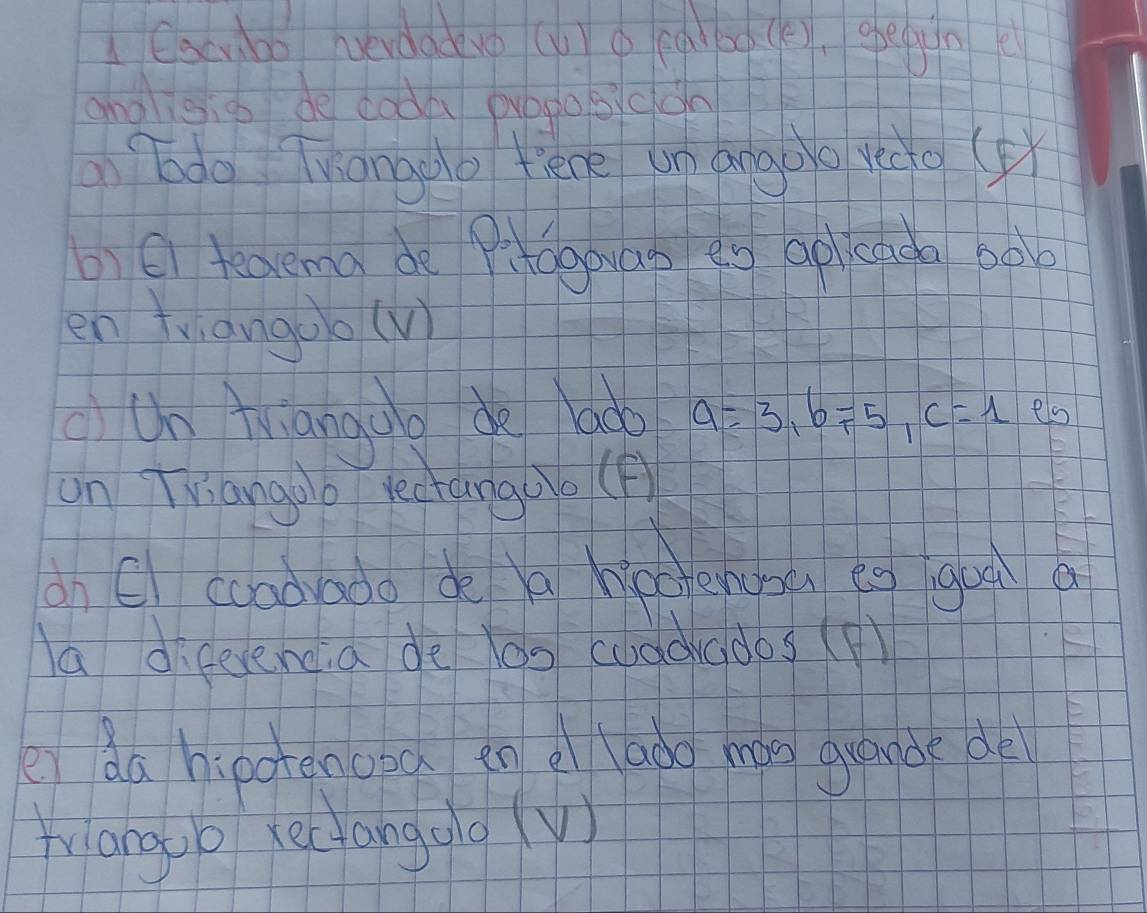 1 Escribo verdadero (V) o falso (F), según el
analisis de cada proposición
a) Todo Triangulo tiene un angulo recto (F)
b) El teorema de Pitágoras es aplicada solo
en triangulo (V)
c) Un triangulo de lado a=3, b=5, c=1 es
un Triangulo rectangulo (F)
d) El cuadrado de la hipotenusa es igual a
la diferencia de los cuadrados (F)
e) La hipotenusa en el lado mas grande del
triangulo rectangulo (V)